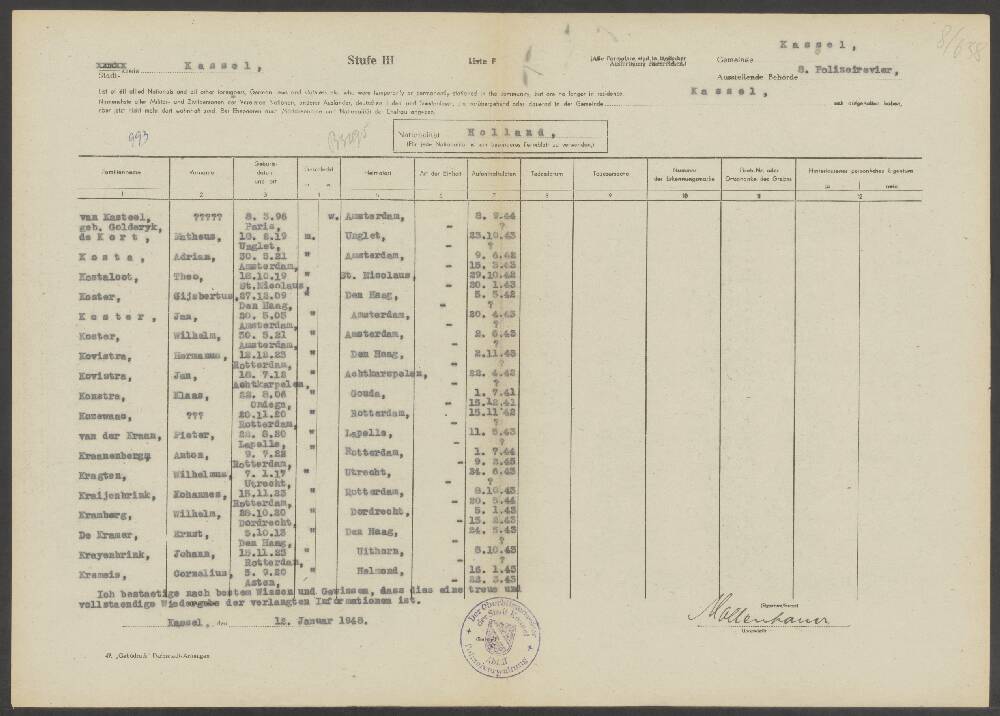 Kassel,
8/638
Stadt- Kassel, Stufe III Liste F Gemeinde
Ausstellende Behörde 8. Polizeirevier,
List of all allied Nationals and all other foreigners, German Jews and stateless etc. who were temporarily or permanently stationed in the community, but are no longer in residence.
Kassel,
993
Nationalität Holland,
(Für jede Nationalität ist ein besonderes Formblatt zu verwenden)
Familienname Vorname Geburts- daten und ort Geschlecht Heimatort Art der Einheit Aufenthaltszeiten Todesdatum Todesursache Nummer der Erkennungsmarke Grab-Nr. oder Ortsangabe des Grabes Hinterlassenes persönliches Eigentum
m w ja nein
1 2 3 4 5 6 7 8 9 10 11 12
van Kasteel, ????? 8. 3.96 w. Amsterdam, 8. 9.44
geb. Golderyk, Paris, - ?
de Kort, Matheus, 10. 6.19 m. Unglet, 23.10.43
Unglet, - ?
Kosta, Adrian, 30. 5.21 " Amsterdam, 9. 6.42
Amsterdam, - 15. 3.43
Kostaloot, Theo, 18.10.19 " St. Nicolaus, 29.10.42
St.Nicolaus, - 20. 1.43
Koster, Gijsbertus, 27.12.09 " Den Haag, 5. 5.42
Den Haag, - ?
Koster, Jan, 20. 5.05 " Amsterdam, 20. 4.43
Amsterdam, - ?
Koster, Wilhelm, 30. 5.21 " Amsterdam, 2. 6.43
Amsterdam, - ?
Kovistra, Hermanus, 12.12.23 " Den Haag, 2.11.43
Rotterdam, - ?
Kovistra, Jan, 18. 7.12 " Achtkarspelen, 22. 4.42
Achtkarpelen, - ?
Konstra, Klaas, 22. 8.06 " Gouda, 1. 7.41
Ondega, - 15.12.41
Kozewaac, ??? 20.11.20 " Rotterdam, 15.11 42
Rotterdam, - ?
van der Kraan, Pieter, 22. 8.20 " Lapelle, 11. 5.43
Lapelle, - ?
Kraanenbergm Anton, 9. 7.22 " Rotterdam, 1. 7.44
Rotterdam, - 9. 3.45
Kragten, Wilhelmus, 7. 1.17 " Utrecht, 24. 6.43
Utrecht, - ?
Kraijenbrink, Kohannes, 15.11.23 " Rotterdam, 8.10.43
Rotterdam, - 20. 5.44
Kramberg, Wilhelm, 28.10.20 " Dordrecht, 5. 1.43
Dordrecht, - 15. 2.43
De Kramer, Ernst, 5.10.13 " Den Haag, 24. 5.43
Den Haag, - ?
Krayenbrink, Johann, 15.11.23 " Uithorn, 8.10.43
Rotterdam, - ?
Krameis, Cornelius, 5. 9.20 " Helmond, 16. 1.43
Asten, - 22. 3.43
Ich bestaetige nach bestem Wissen und Gewissen, dass dies eine treue und
vollstaendige Wiedergabe der verlangten Informationen ist.
Kassel, den 12. Januar 1948.
Der Oberbürgermeister der Stadt Kassel
Polizeiverwaltung
Mollenhauer
Unterschrift